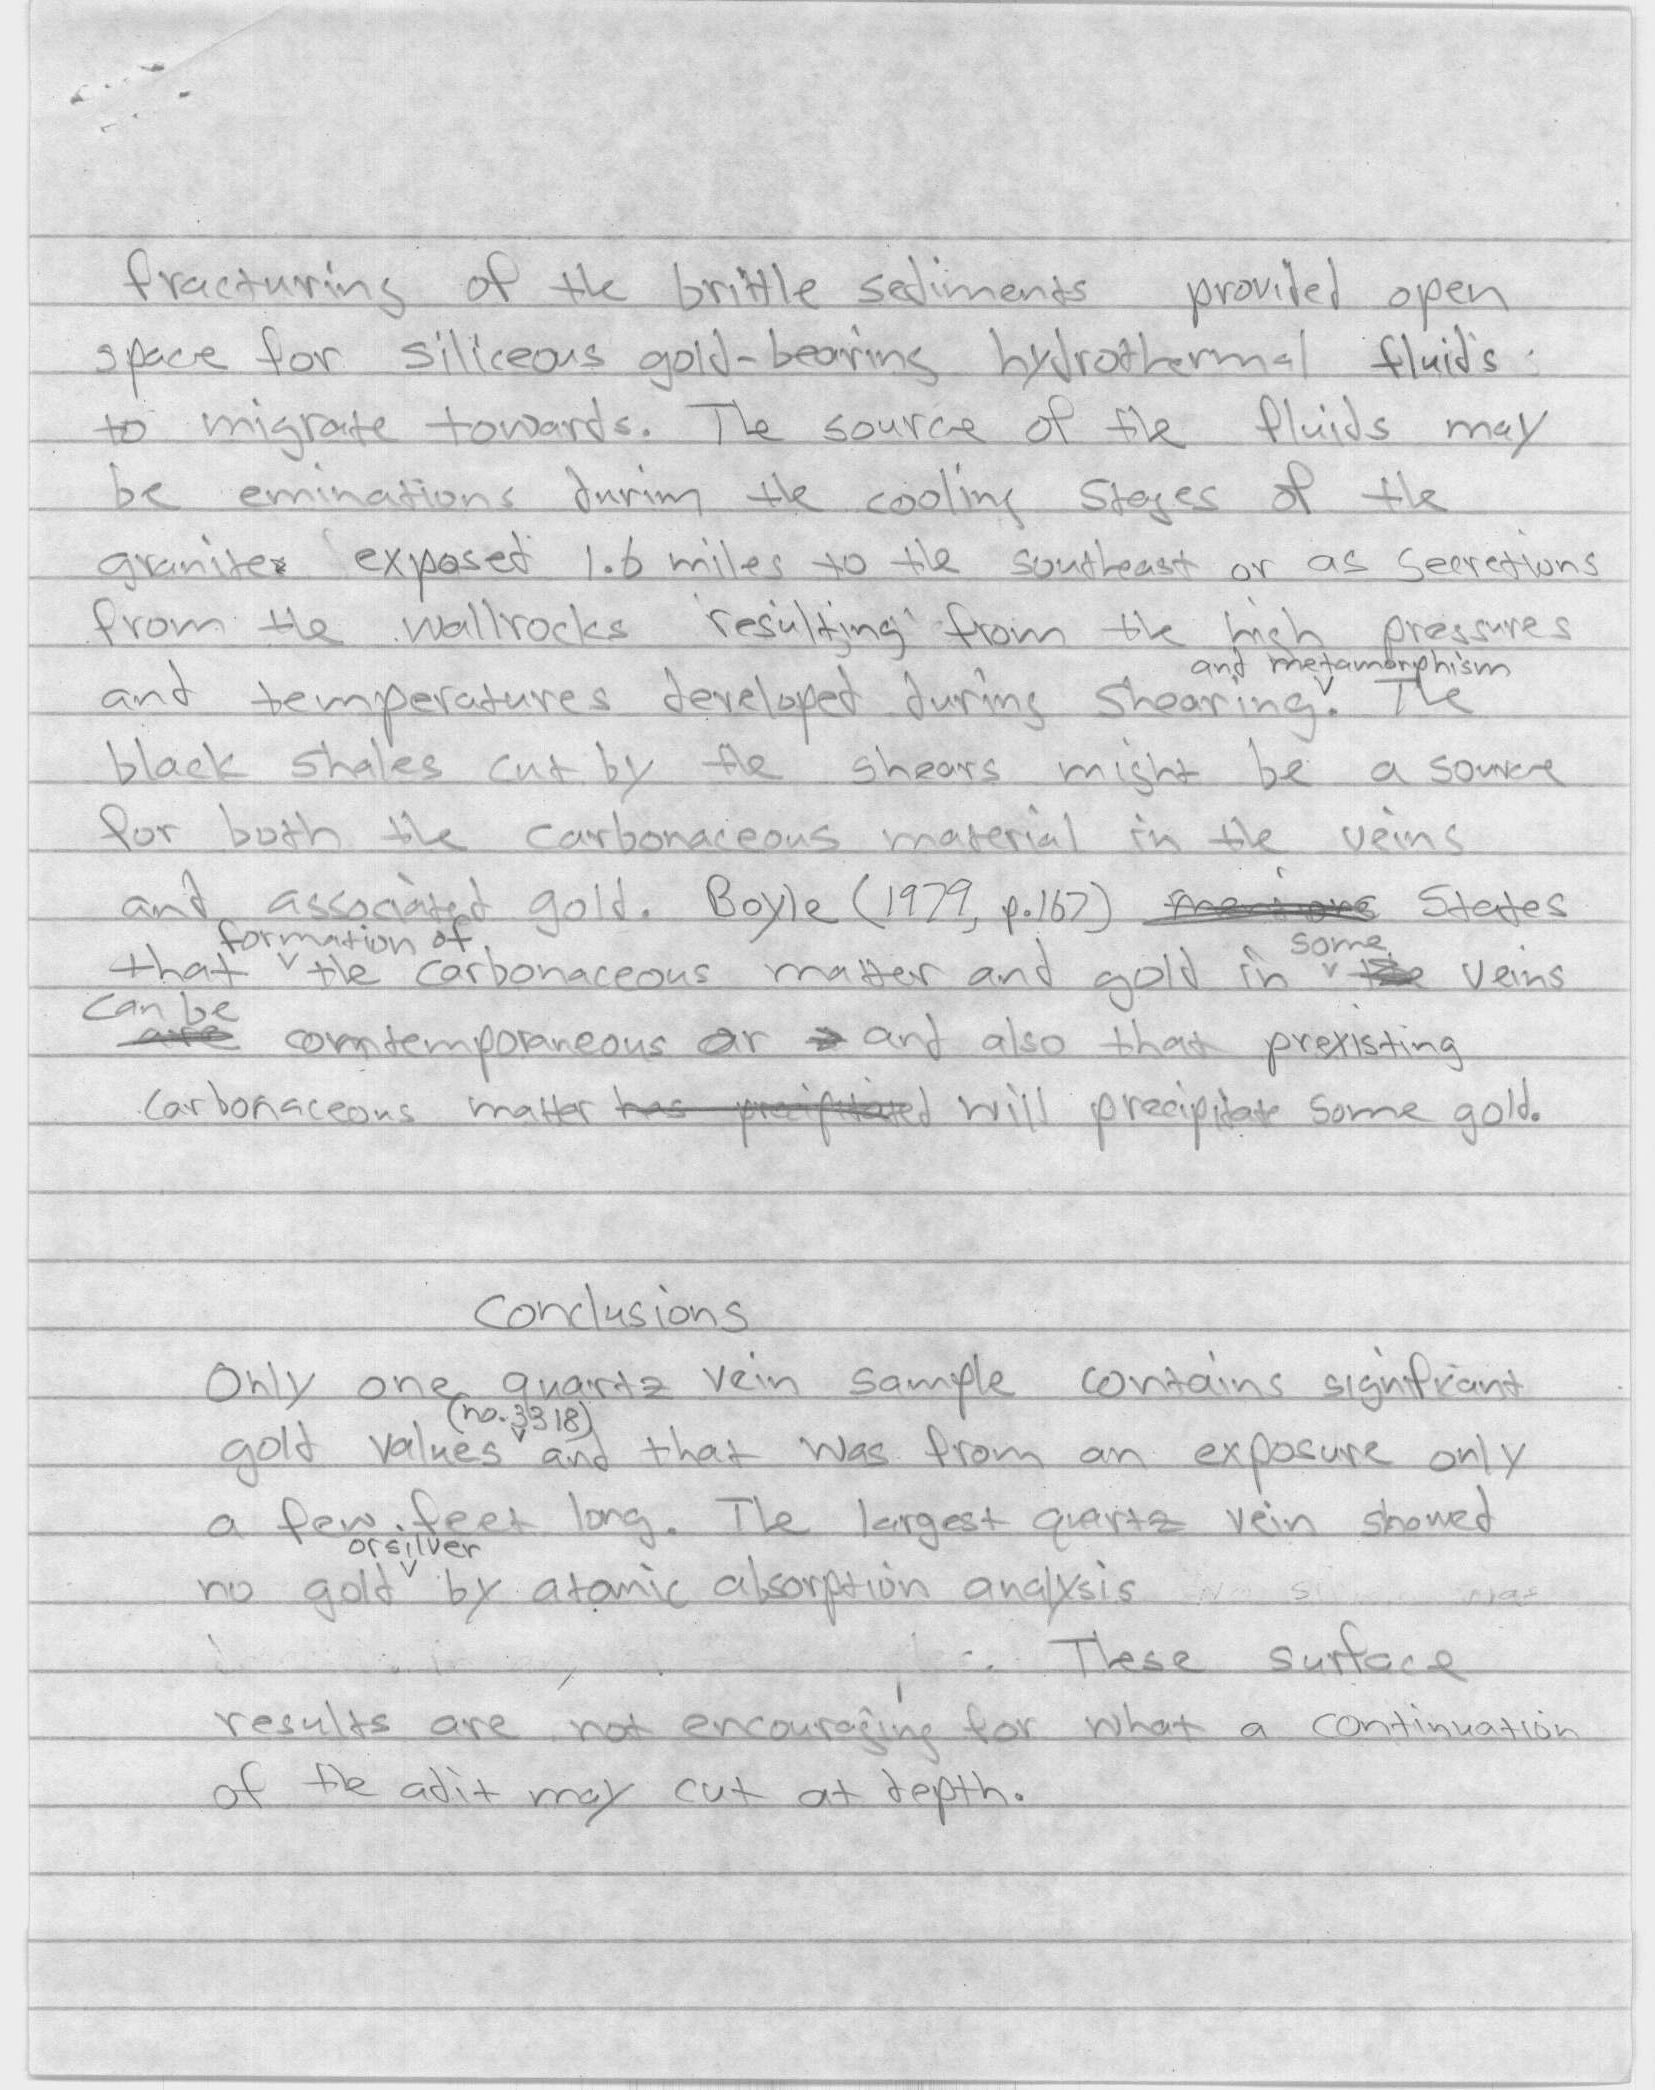 fracturing of the brittle sediments provided open
space for siliceous gold-bearing hydrothermal fluids
to migrate towards. The source of the fluids may
be eminations during the cooling stages of the
granite exposed 1.6 miles to the southeast or as secretions
from the wallrocks resulting from the high pressures
and metamorphism
and temperatures developed during shearing. The
black shales cut by the shears might be a source
for both the carbonaceous material in the veins
and associated gold. Boyle (1979, p.167) States
formation of some
that the carbonaceous matter and gold in the veins
can be
are comtemporaneous or and also that prexisting
carbonaceous matter has precipitated will precipitate some gold.
Conclusions
Only one quartz vein sample contains significant
(no. 3318)
gold values and that was from an exposure only
a few feet long. The largest quartz vein showed
or silver
no gold by atomic absorption analysis
These surface
results are not encouraging for what a continuation
of the adit may cut at depth.